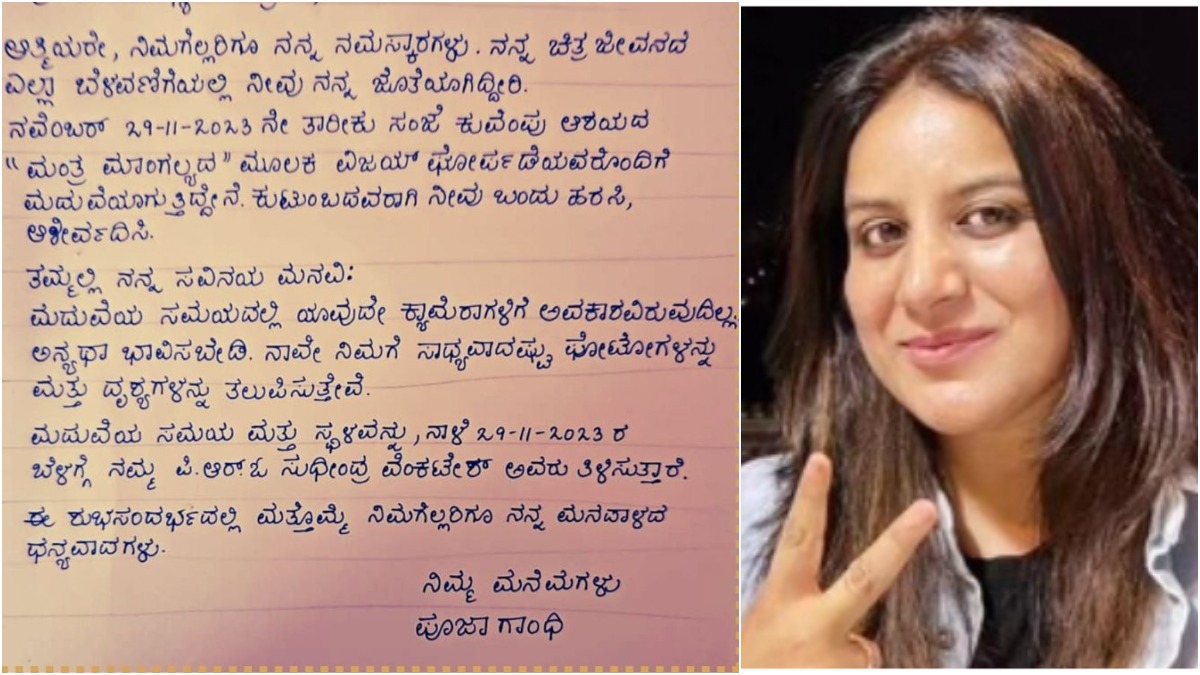 ಆತ್ಮಿಯರೇ, ನಿಮಗೆಲ್ಲರಿಗೂ ನನ್ನ ನಮಸ್ಕಾರಗಳು. ನನ್ನ ಚಿತ್ರ ಜೀವನದ
ಎಲ್ಲಾ ಬೆಳವಣಿಗೆಯಲ್ಲಿ ನೀವು ನನ್ನ ಜೊತೆಯಾಗಿದ್ದೀರಿ.
ನವೆಂಬರ್ 29-11-2023 ನೇ ತಾರೀಕು ಸಂಜೆ ಕುವೆಂಪು ಆಶಯದ
“ ಮಂತ್ರ ಮಾಂಗಲ್ಯದ” ಮೂಲಕ ವಿಜಯ್ ಘೋರ್ಪಡೆಯವರೊಂದಿಗೆ
ಮದುವೆಯಾಗುತ್ತಿದ್ದೇನೆ. ಕುಟುಂಬದವರಾಗಿ ನೀವು ಬಂದು ಹರಸಿ,
ಆಶೀರ್ವದಿಸಿ.
ತಮ್ಮಲ್ಲಿ ನನ್ನ ಸವಿನಯ ಮನವಿ:
ಮದುವೆಯ ಸಮಯದಲ್ಲಿ ಯಾವುದೇ ಕ್ಯಾಮೆರಾಗಳಿಗೆ ಅವಕಾಶವಿರುವುದಿಲ್ಲ.
ಅನ್ಯಥಾ ಭಾವಿಸಬೇಡಿ. ನಾವೇ ನಿಮಗೆ ಸಾಧ್ಯವಾದಷ್ಟು ಫೋಟೋಗಳನ್ನು
ಮತ್ತು ದೃಶ್ಯಗಳನ್ನು ತಲುಪಿಸುತ್ತೇವೆ.
ಮದುವೆಯ ಸಮಯ ಮತ್ತು ಸ್ಥಳವನ್ನು, ನಾಳೆ 29-11-2023 ರ
ಬೆಳಗ್ಗೆ ನಮ್ಮ ಪಿ.ಆರ್.ಓ ಸುಧೀಂದ್ರ ವೆಂಕಟೇಶ್ ಅವರು ತಿಳಿಸುತ್ತಾರೆ.
ಈ ಶುಭಸಂದರ್ಭದಲ್ಲಿ ಮತ್ತೊಮ್ಮೆ ನಿಮಗೆಲ್ಲರಿಗೂ ನನ್ನ ಮನದಾಳದ
ಧನ್ಯವಾದಗಳು.
ನಿಮ್ಮ ಮನೆಮಗಳು
ಪೂಜಾ ಗಾಂಧಿ